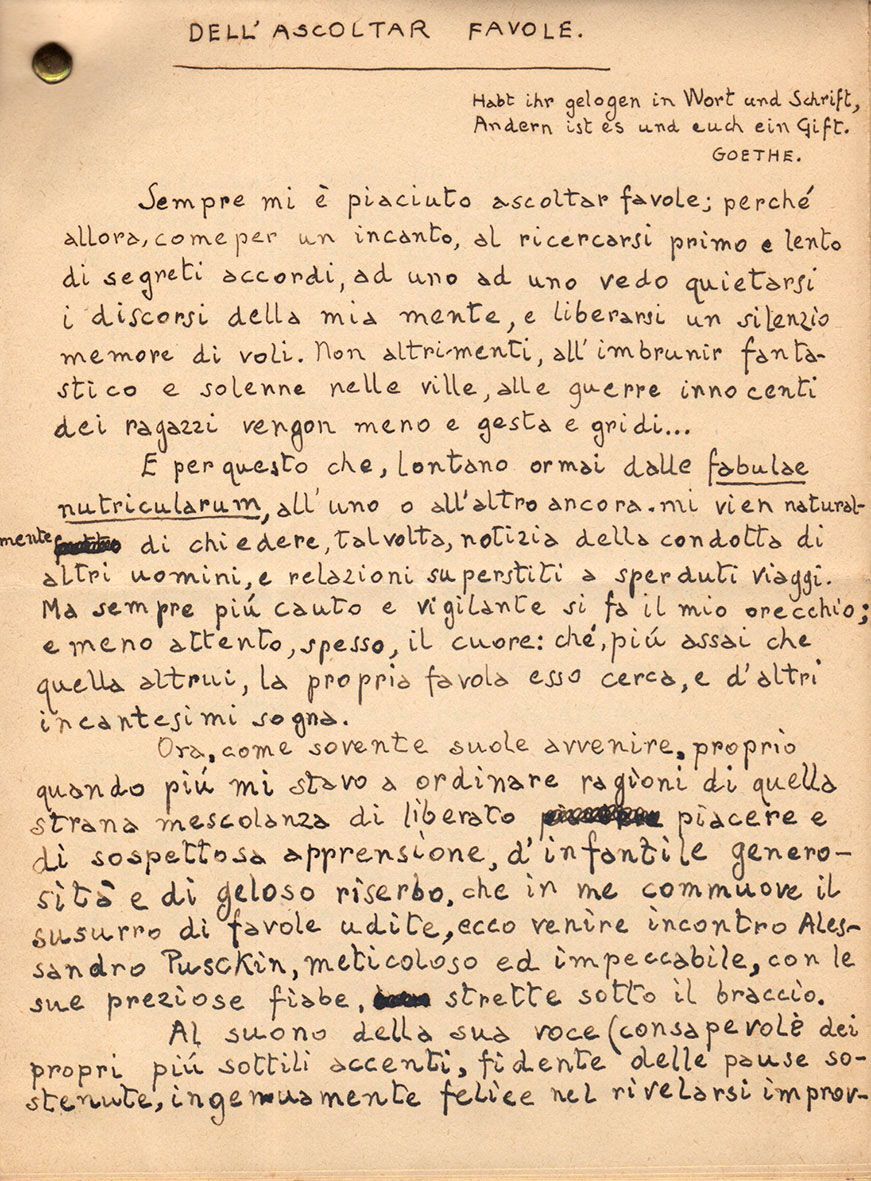 DELL'ASCOLTAR FAVOLE.
Habt ihr gelogen in Wort und Schrift,
Andern ist es und euch ein Gift.
GOETHE.
Sempre mi è piaciuto ascoltar favole; perché
allora, come per un incanto, al ricercarsi primo e lento
di segreti accordi, ad uno ad uno vedo quietarsi
i discorsi della mia mente, e liberarsi un silenzio
memore di voli. Non altrimenti, all'imbrunir fanta-
stico e solenne nelle ville, alle guerre innocenti
dei ragazzi vengon meno e gesta e gridi...
E per questo che, lontano ormai dalle fabulae
nutricularum, all'uno o all'altro ancora mi vien natural-
mente di chiedere, talvolta, notizia della condotta di
altri uomini, e relazioni superstiti a sperduti viaggi.
Ma sempre piú cauto e vigilante si fa il mio orecchio;
e meno attento, spesso, il cuore: ché, piú assai che
quella altrui, la propria favola esso cerca, e d'altri
incantesimi sogna.
Ora, come sovente suole avvenire, proprio
quando piú mi stavo a ordinare ragioni di quella
strana mescolanza di liberato piacere e
di sospettosa apprensione, d'infantile genero-
sità e di geloso riserbo, che in me commuove il
susurro di favole udite, ecco venire incontro Ales-
sandro Pusckin, meticoloso ed impeccabile, con le
sue preziose fiabe, strette sotto il braccio.
Al suono della sua voce (consapevole dei
propri piú sottili accenti, fidente delle pause so-
stenute, ingenuamente felice nel rivelarsi improv-